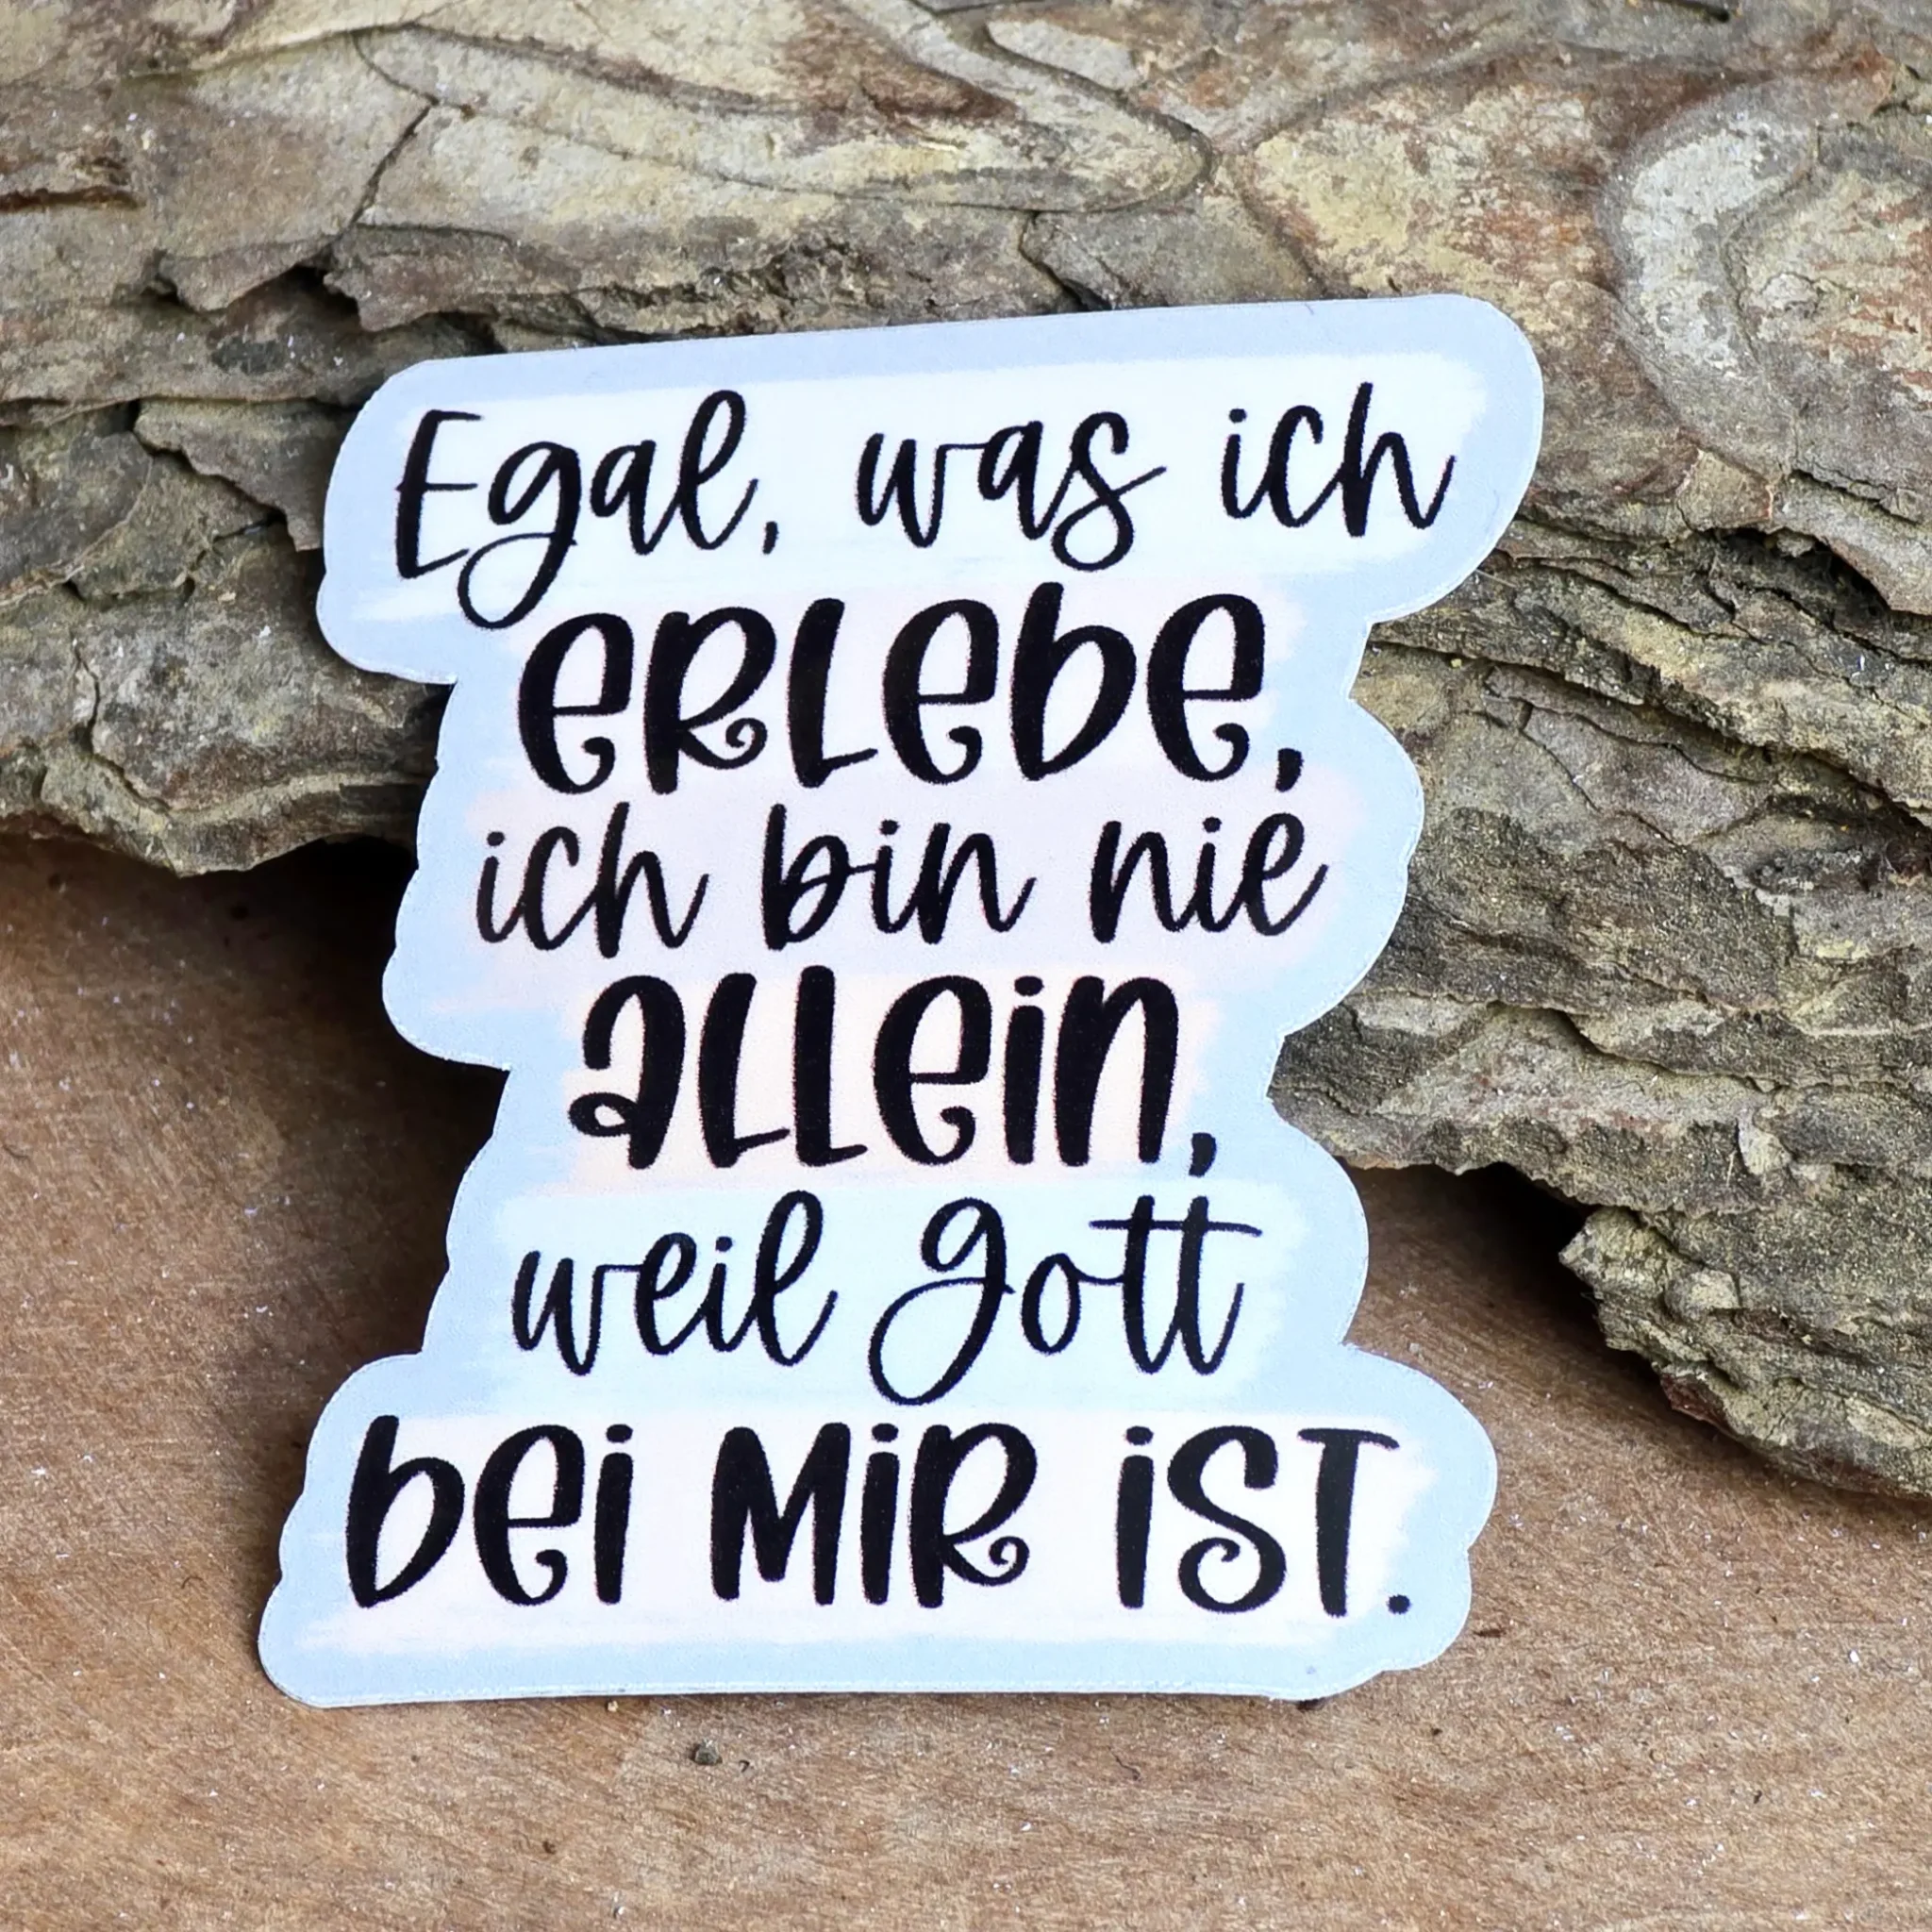 Egal, was ich
erlebe,
ich bin nie
allein,
weil Gott
bei mir ist.